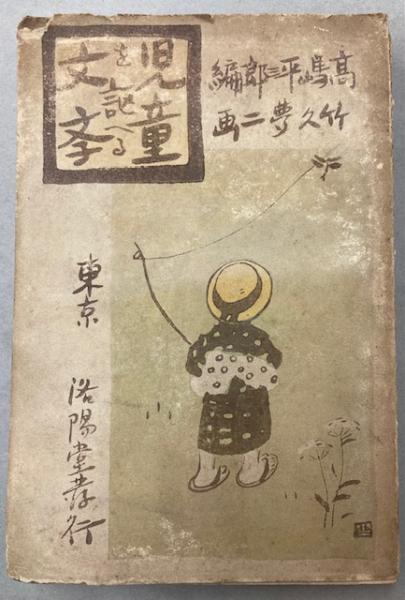 児童
を謳へる
文学
高嶋平三郎編
竹久夢二画
東京　洛陽堂発行